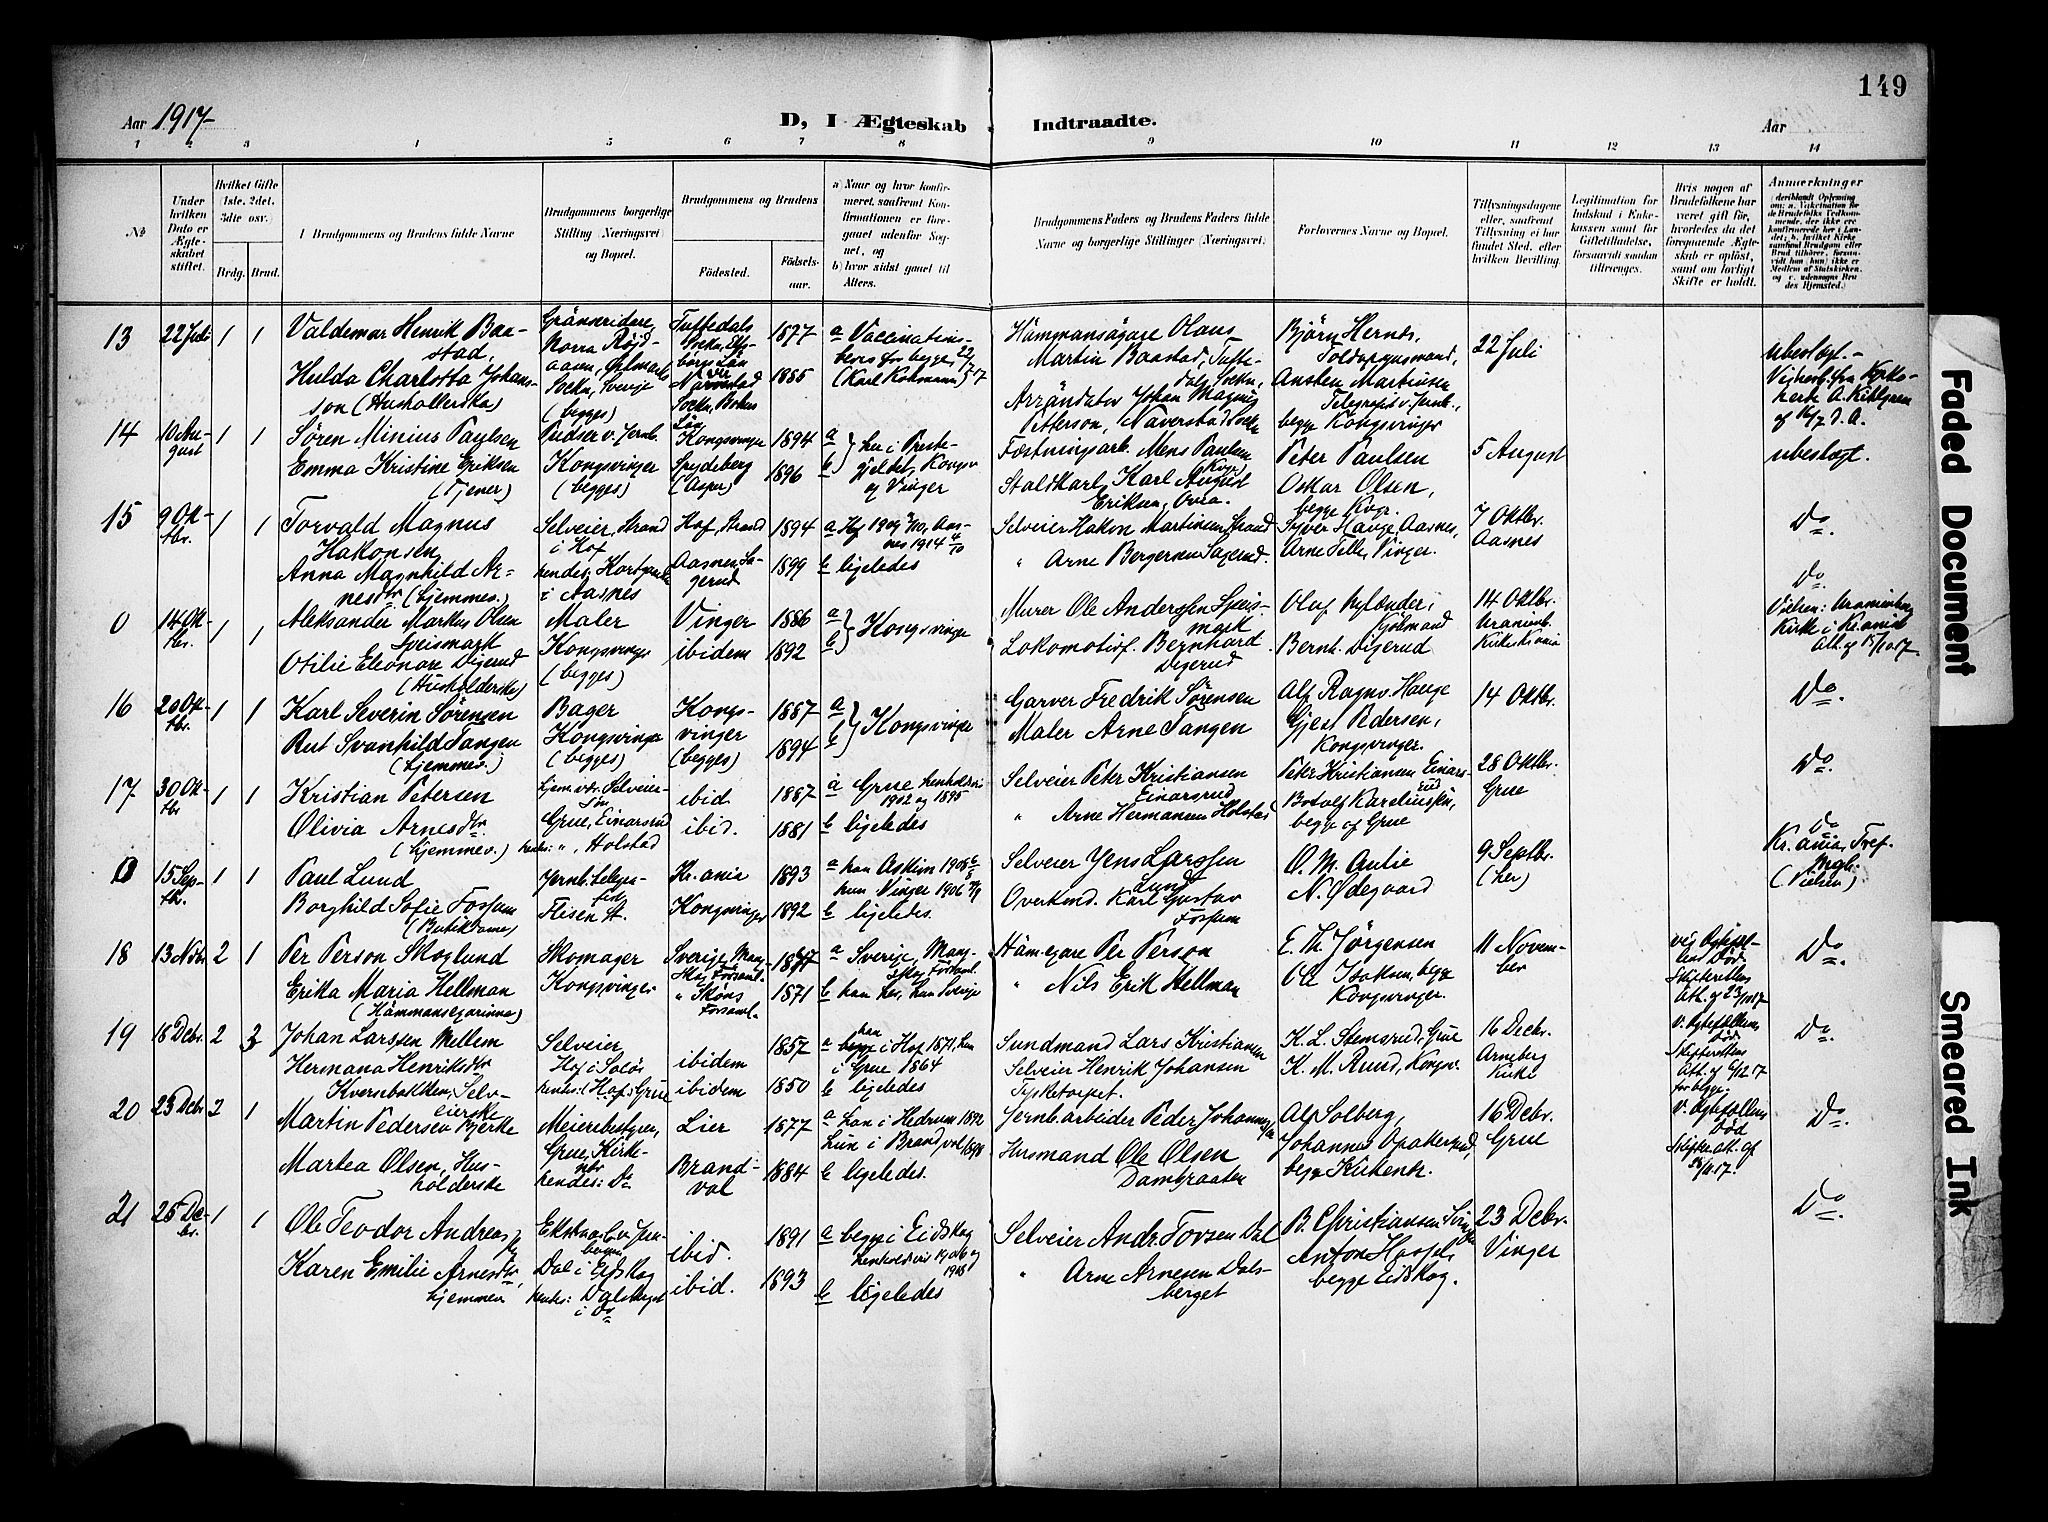 149
Aar 1917
D, I Ægteskab Indtraadte.
Aar
1 2 3 4 5 6 7 8 9 10 11 12 13 14
No
Under hvilken Dato er Ægteskabet stiftet.
Hvilket Gifte (1ste, 2det, 3dte osv.)
Brdg. Brud.
Brudgommens og Brudens fulde Navne
Brudgommens borgerlige Stilling (Næringsvei) og Bopæl.
Brudgommens og Brudens
Fødested.
Fødselsaar.
a) Naar og hvor konfirmeret, saafremt Konfirmationen er foregaaet udenfor Sognet, og
b) hvor sidst gaaet til Alters.
Brudgommens Faders og Brudens Faders fulde Navne og borgerlige Stillinger (Næringsvei)
Forlovernes Navne og Bopæl.
Tillysningsdagene eller, saafremt Tillysning ei har fundet Sted, efter hvilken Bevilling.
Legitimation for Indskud i Enkekassen samt for Giftetilladelse, forsaavidt saadan tiltrenges.
Hvis nogen af Brudefolkene har været gift før, hvorledes da det foregaaende Ægteskab er opløst, samt om lovligt Skifte er holdt.
Anmerkninger
13 22 Juli 1 1
Valdemar Henrik Baastad,
Hulda Charlotta Johansson (Husholderska)
Gränsridare, Norra Röjdaasen, Östmarks Sockn, Sverje (begges)
1877
1885
a Vaccinationsbevis for begge 22/7 17
Hämmansägare Olaus Martin Baastad,
Arrändator Johan Magnus Petterson, Naverstad Sockn
Bjørn Hernes, Toldopsynsmand,
Ansten Martinsen Telegrafis v. Jernb., begge Kongsvinger
22 Juli
ubeslægt.
14 10 August 1 1
Søren Minius Paulsen
Emma Kristine Eriksen (Tjener)
Pudser v. Jernb.
Kongsvinger (begges)
Kongsvinger
Spydeberg
1894
1896
a b her i Prestegjeldet, Kongsv. og Vinger
Fæstningsarb. Mens Paulsen
Staldkarl Karl August Eriksen,
Peter Paulsen
Oskar Olsen, begge Kvgr.
5 August
ubeslægt.
15 9 Oktbr. 1 1
Torvald Magnus Hakonsen
Anna Magnhild Arnesdtr (hjemmev.)
Selveier, Strand i Hof
hendes: i Aasnes
Hof, Strand
Aasnes, Sagerud
1894
1899
b ligeledes
Selveier Hakon Martinsen Strand
" Arne Bergersen Sagerud.
Syver Hauge Aasnes,
Arne Telle, Vinger.
7 Oktbr. Aasnes
Do
0 14 Oktbr. 1 1
Aleksander Markus Olsen Speismark
Otilie Eleonore Digerud (Husholderske)
Maler
Kongsvinger (begges)
Vinger
ibidem
1886
1892
a b Kongsvinger
Murer Ole Andersen Speismark
Lokomotivf. Bernhard Digerud
Oluf Rylander, Kjøbmand
Bernh. Digerud
14 Oktbr. Uranienb. Kirke Kr.ania
Do
Vielsen: Uranienborg Kirke i Kr.ania Att. af 15/10 17.
16 20 Oktbr. 1 1
Karl Severin Sørensen
Rut Svanhild Tangen (hjemmev.)
Bager
Kongsvinger (begges)
Kongsvinger (begges)
1887
1894
a b Kongsvinger
Garver Fredrik Sørensen
Maler Arne Tangen
Alf Ragnv. Hauge
Gjert Pedersen, Kongsvinger.
14 Oktbr.
Do.
17 30 Oktbr 1 1
Kristian Petersen
Olivia Arnesdtr (hjemmev.)
Hjemv. v. Selveiersøn
Grue, Einarsrud
hendes: ", Holstad
ibid
ibid.
1887
1881
a Grue henholdsvis 1902 og 1895
b ligeledes
Selveier Peter Kristiansen Einarsrud
" Arne Hermansen Holstad
Peter Kristiansen Einarsrud
Botolf Kareliussen, begge af Grue
28 Oktbr. Grue
Do.
0 15 Septbr. 1 1
Paul Lund
Borghild Sofie Fossum (Butikdame)
Flisen St.
Kr.ania
Kongsvinger
1893
1892
a han Askim 1908
hun Vinger 1906
b ligeledes.
Selveier Jens Larssen Lund
Karl Gustav Fossum
O. M. Aulie
N. Ødegaard
9 Septbr. (her)
Do
18 13 Novbr 2 1
Per Person Skoglund
Erika Maria Hellman (Hämmansegarinna)
Skomager
Kongsvinger
1871
a Sverige,
b han her, hun Sverige
Hämegare Per Person
" Nils Erik Hellman
E. Th. Jørgensen
Ole Isaksen, begge Kongsvinger.
11 November
ved Ægtefællens Død. Skifterettens Att. af 23/10 17
Do.
19 18 Decbr. 2 3
Johan Larssen Mellem
Hermana Henriksdtr Kvernbakken, Selveierske
Selveier
Hof i Solør
hendes: Hof, Grue
ibidem
ibidem
1857
1850
a han i Hof 1871, hun i Grue 1864
b ligeledes
Sundmand Lars Kristiansen
Selveier Henrik Johansen Tysketorpet.
K. L. Stemsrud, Grue
K. M. Rund, Kongsv.
16 Decbr. Arneberg Kirke
v. Ægtefællens Død Skifterettens Att. af 6/12 17 for begge.
Do.
20 25 Decbr 2 1
Martin Pedersen Bjerke
Martea Olsen, Husholderske
Meieribestyrer,
Grue, Kirkenær
hendes: Do
Lier
Brandval
1877
1884
a han i Hedrum 1892
hun i Brandval 1898
b ligeledes.
Jernb.arbeider Peder Johannessen
Husmand Ole Olsen Dambraaten
Alf Solberg,
Johannes Opakerud, begge Kirkenær.
16 Decbr. Grue
v. Ægtefællens Død Skifteatt. af
Do.
21 25 Decbr. 1 1
Ole Teodor Andreassen
Karen Emilie Arnesdtr, hjemmev
Dal i Eidskog
hendes: Dalsberget i Do
ibid.
ibid.
1891
1893
a begge i Eidskog henholdsvis 1906 og 1908
b ligeledes
Selveier Andr. Torsen Dal
" Arne Arnesen Dalsberget
B. Christiansen
Anton Hassel, begge Eidskog.
23 Decbr. Vinger
Do.
Faded Document
Smeared Ink